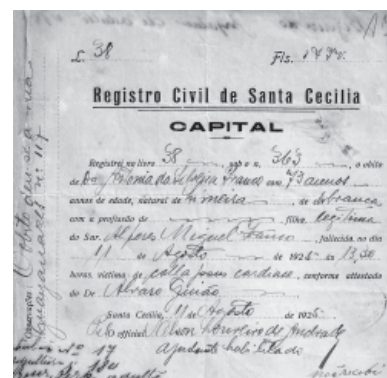 L. 38 Fls. 
Registro Civil de Santa Cecilia
CAPITAL
Registrei no livro 38, sob o n. 363, o obito
de D. Antonia da Silveira Franco com 73 annos
annos de edade, natural de Limeira, de côr branca
com a profissão de filha legitima
do Snr. Alferes Miguel Franco, fallecida no dia
11 de Agosto de 1926 ás 13,30
horas, victima de collapso cardiaco, conforme attestado
do Dr. Alvaro Guião
Santa Cecilia, 11 de Agosto de 1926
O official Nelson Loureiro de Andrade
Ajudante habilitado
Nº 17
Observação: O obito deu-se á rua
Guayanazes nº 117